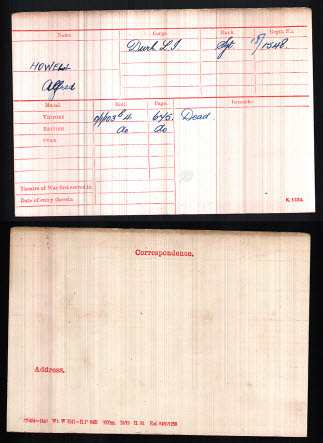 Name. Corps. Rank. Regtl. No.
Durh L I Sjt. 18/1548
HOWELL
Alfred
Medal. Roll. Page. Remarks.
VICTORY 6 4 645. Dead.
BRITISH do do
STAR
Theatre of War first served in
Date of entry therein
K. 1380.
Correspondence.
Address.